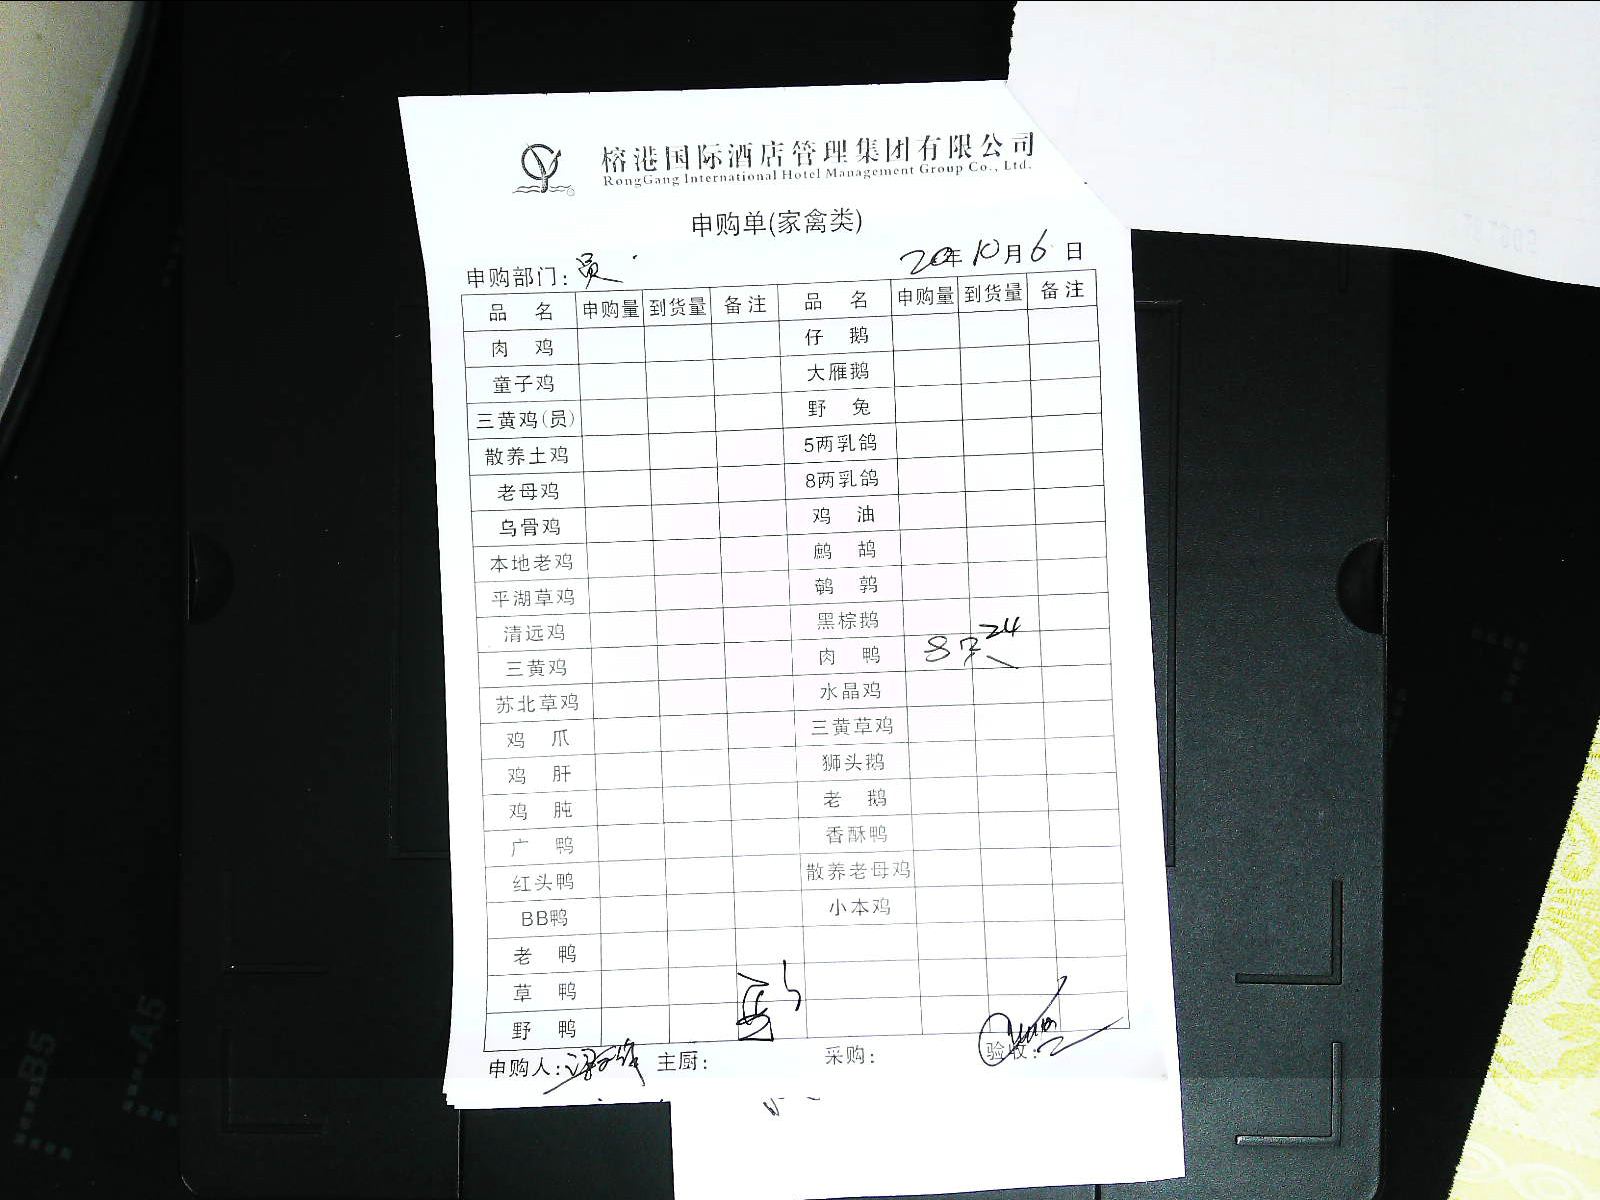 榕港国际酒店管理集团有限公司
RongGang International Hotel Management Group Co., Ltd.
申购单(家禽类)
申购部门: 员 20年 10月 6日
品 名 申购量 到货量 备注 品 名 申购量 到货量 备注
肉 鸡 仔 鹅
童子鸡 大雁鹅
三黄鸡(员) 野 兔
散养土鸡 5两乳鸽
老母鸡 8两乳鸽
乌骨鸡 鸡 油
本地老鸡 鹧 鸪
平湖草鸡 鹌 鹑
清远鸡 黑棕鹅
三黄鸡 肉 鸭 8只 24
苏北草鸡 水晶鸡
鸡 爪 三黄草鸡
鸡 肝 狮头鹅
鸡 肫 老 鹅
广 鸭 香酥鸭
红头鸭 散养老母鸡
BB鸭 小本鸡
老 鸭
草 鸭
野 鸭
申购人: 主厨: 采购: 验收:
B5
A5